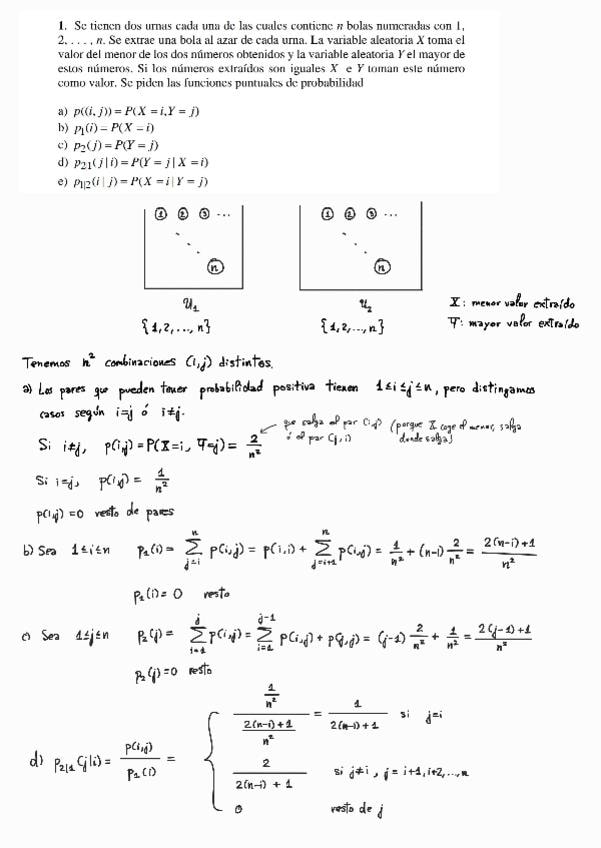 1. Se tienen dos urnas cada una de las cuales contiene n bolas numeradas con 1,
2, . . . , n. Se extrae una bola al azar de cada urna. La variable aleatoria X toma el
valor del menor de los dos números obtenidos y la variable aleatoria Y el mayor de
estos números. Si los números extraídos son iguales X e Y toman este número
como valor. Se piden las funciones puntuales de probabilidad
a) p((i, j)) = P(X = i,Y = j)
b) p₁(i) = P(X = i)
c) p₂(j) = P(Y = j)
d) p₂₁(j | i) = P(Y = j | X = i)
e) p₁|₂(i | j) = P(X = i | Y = j)
① ② ③ ... ① ② ③ ...
ⓝ ⓝ
U₁ U₂
{1,2,..., n} {1,2,..., n}
X: menor valor extraído
Y: mayor valor extraído
Tenemos n² combinaciones (i,j) distintas.
a) Los pares que pueden tener probabilidad positiva tienen 1≤i≤j≤n, pero distingamos
casos según i=j ó i≠j.
Si i≠j, p(i,j) = P(X=i, Y=j) = 2/n² ← que salga el par (i,j) ó el par (j,i) (porque X coge el menor, salga donde salga)
Si i=j, p(i,j) = 1/n²
p(i,j) = 0 resto de pares
b) Sea 1≤i≤n p₁(i) = Σ_{j=i}^{n} p(i,j) = p(i,i) + Σ_{j=i+1}^{n} p(i,j) = 1/n² + (n-i) 2/n² = (2(n-i)+1)/n²
p₁(i) = 0 resto
c) Sea 1≤j≤n p₂(j) = Σ_{i=1}^{j} p(i,j) = Σ_{i=1}^{j-1} p(i,j) + p(j,j) = (j-1) 2/n² + 1/n² = (2(j-1)+1)/n²
p₂(j) = 0 resto
d) p₂|₁(j|i) = p(i,j)/p₁(i) = { (1/n²)/((2(n-i)+1)/n²) = 1/(2(n-i)+1) si j=i
2/(2(n-i)+1) si j≠i, j = i+1, i+2, ..., n
0 resto de j